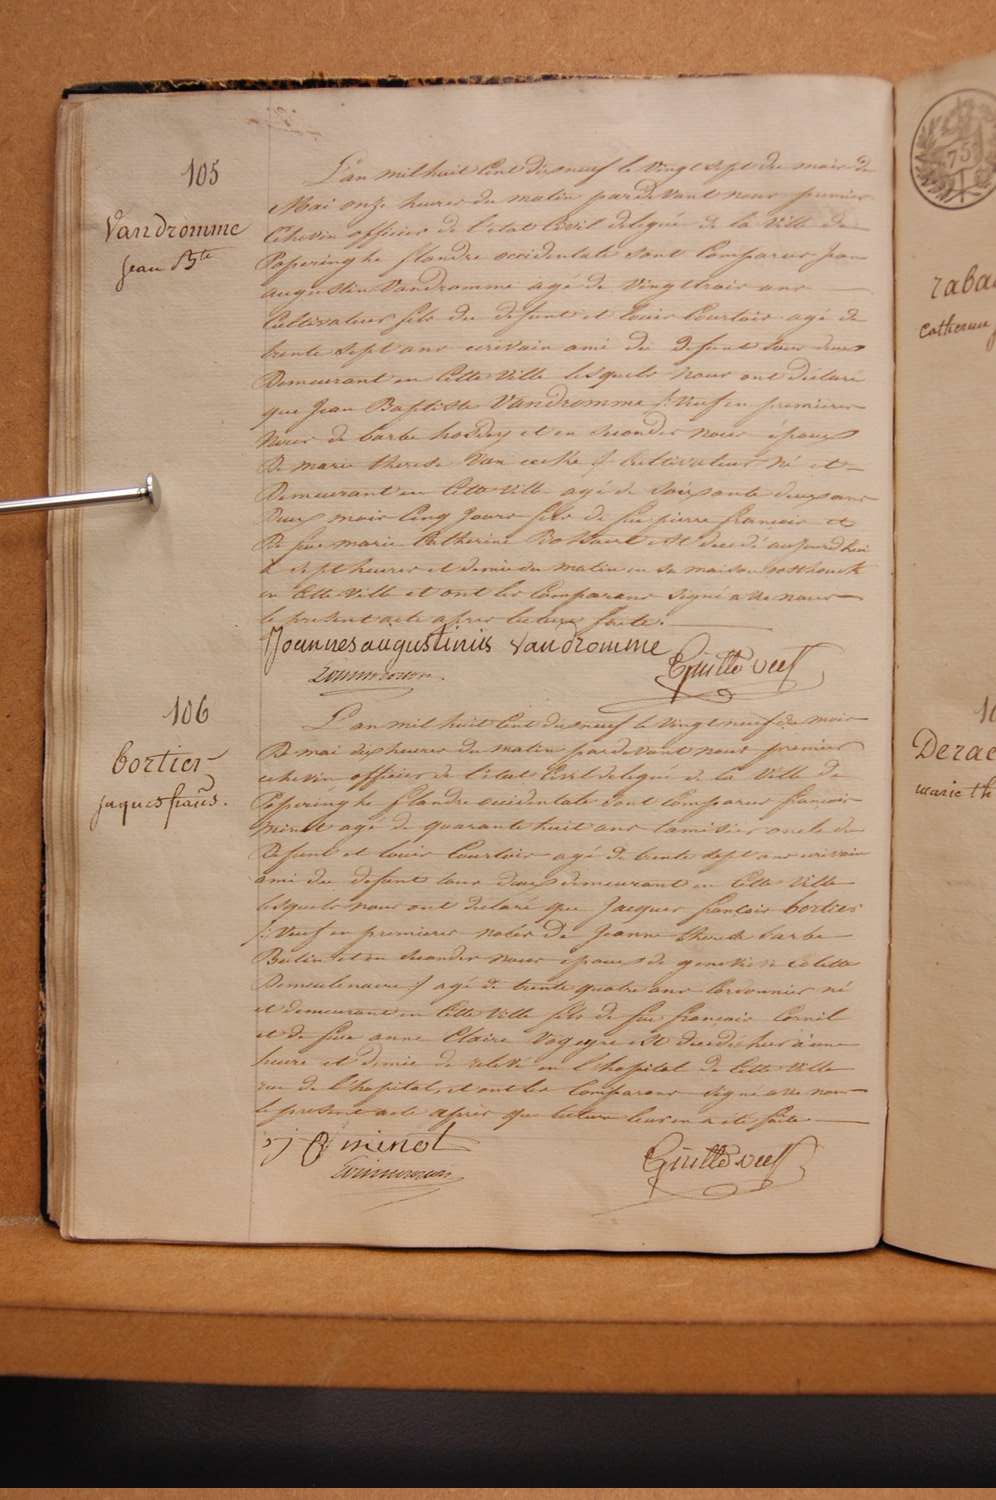 105
Vandromme
Jean Bte
L'an mil huit Cent dixneuf le vingt sept du mois de
Mai onze heures du matin pardevant nous premier
Echevin officier de l'etat Civil delegué de la Ville de
Poperinghe flandre occidentale sont Comparus jean
augustin Vandromme agé de vingt trois ans
Cultivateur fils du defunt et Louis Courtois agé de
trente sept ans ecrivain ami du defunt tous deux
Demeurant en Cette Ville lesquels nous ont déclaré
que Jean Baptiste Vandromme /: Veuf en premieres
Noces de barbe et en secondes noces époux
De marie therese Van :/ Cultivateur né et
Demeurant en Cette Ville agé de soixante deux ans
Deux mois Cinq Jours fils de feu pierre francois et
De feue marie Catherine est decedé aujourdhui
à sept heures et demie du matin en sa maison
en Cette Ville et ont les Comparans signé avec nous
le present acte apres lecture faite.
Joannes augustinus Vandromme
106
bortier
jaques frans.
L'an mil huit Cent dixneuf le vingt neuf du mois
De mai dix heures du matin pardevant nous premier
echevin officier de l'etat Civil delegué de la Ville de
Poperinghe flandre occidentale sont Comparus francois
minot agé de quarante huit ans tamisier oncle du
Defunt et Louis Courtois agé de trente sept ans ecrivain
ami du defunt tous deux demeurant en Cette Ville
lesquels nous ont declaré que Jacques francois bortier
/: Veuf en premieres noces de Jeanne therese barbe
et en secondes noces epoux de genevieve colette
Demeulenaere :/ agé de trente quatre ans Cordonnier né
et demeurant en Cette Ville fils de feu francois Cornil
et de feue anne Claire est decedé hier à une
heure et demie de relevé en l'hopital de Cette Ville
rue de l'hopital, et ont les Comparans signé avec nous
le present acte apres que lecture leur en a eté faite
minot
75
raba
catherine
10
Derae
marie th